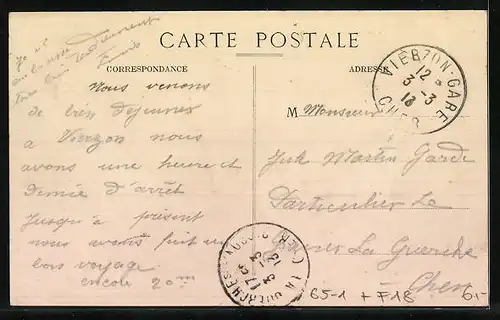 CARTE POSTALE
CORRESPONDANCE
ADRESSE
Je vs
embrasse
très bien tendrement
VIERZON-GARE
12
3-3
13
CHER
Nous venons
de bien déjeuner
à Vierzon nous
avons une heure et
demie d'arrêt
jusqu'à présent
nous avons fait un
bon voyage
encore 20 m
M Monsieur
Martin Garde
Particulier Le
La Guerche
Cher
LA GUERCHE
(CHER)
65-1 + F18